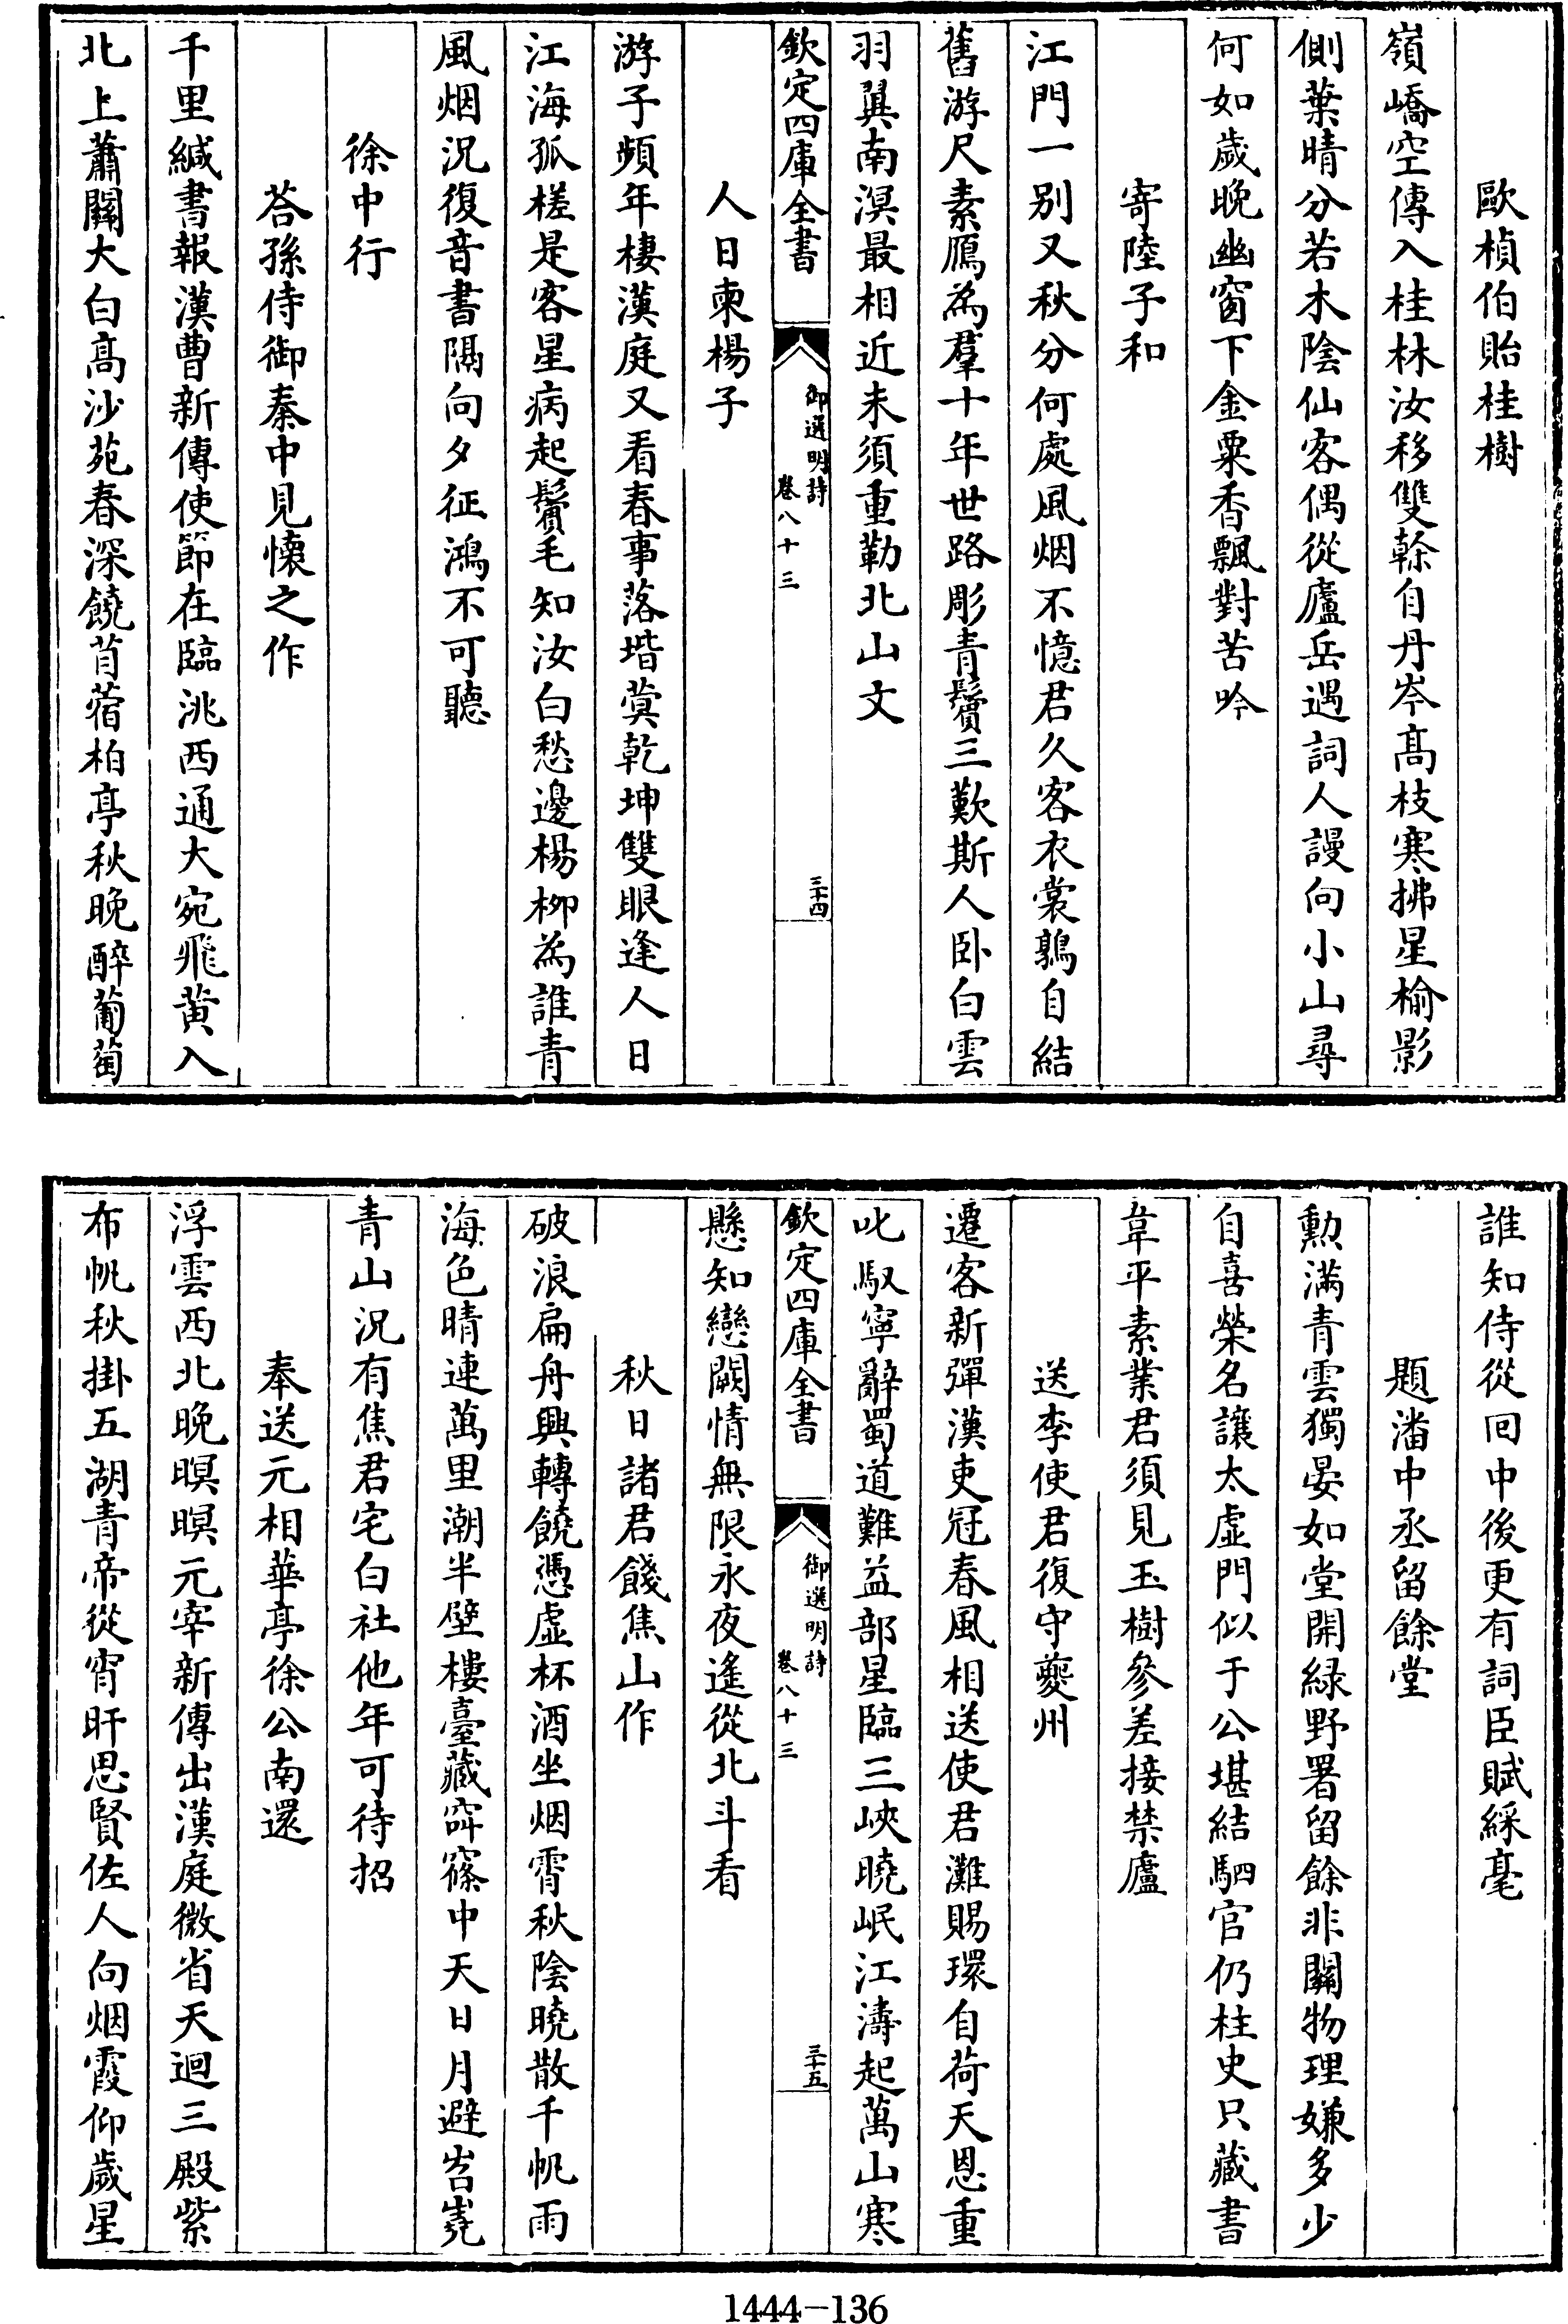 歐楨伯貽桂樹
嶺嶠空傳入桂林汝移雙榦自丹岑高枝寒拂星榆影
側葉晴分若木陰仙客偶從廬岳遇詞人謾向小山尋
何如歲晚幽窗下金粟香飄對苦吟
寄陸子和
江門一別又秋分何處風烟不憶君久客衣裳鶉自結
舊游尺素鴈為羣十年世路彫青鬢三歎斯人卧白雲
羽翼南溟最相近未須重勒北山文
欽定四庫全書
御選明詩
卷八十三
三十四
人日柬楊子
游子頻年棲漢庭又看春事落堦蓂乾坤雙眼逢人日
江海孤槎是客星病起鬢毛知汝白愁邊楊柳為誰青
風烟況復音書隔向夕征鴻不可聽
徐中行
荅孫侍御秦中見懷之作
千里緘書報漢曹新傳使節在臨洮西通大宛飛黃入
北上蕭關大白高沙苑春深饒苜蓿柏亭秋晚醉葡萄
誰知侍從回中後更有詞臣賦綵毫
題潘中丞留餘堂
勲滿青雲獨晏如堂開緑野署留餘非關物理嫌多少
自喜榮名讓太虛門似于公堪結駟官仍柱史只藏書
韋平素業君須見玉樹參差接禁廬
送李使君復守夔州
遷客新彈漢吏冠春風相送使君灘賜環自荷天恩重
叱馭寧辭蜀道難益部星臨三峽曉岷江濤起萬山寒
欽定四庫全書
御選明詩
卷八十三
三十五
懸知戀闕情無限永夜遙從北斗看
秋日諸君餞焦山作
破浪扁舟興轉饒憑虛杯酒坐烟霄秋陰曉散千帆雨
海色晴連萬里潮半壁樓臺藏窅窱中天日月避岧嶤
青山況有焦君宅白社他年可待招
奉送元相華亭徐公南還
浮雲西北晚暝暝元宰新傳出漢庭微省天迴三殿紫
布帆秋掛五湖青帝從宵旰思賢佐人向烟霞仰歲星
1444-136